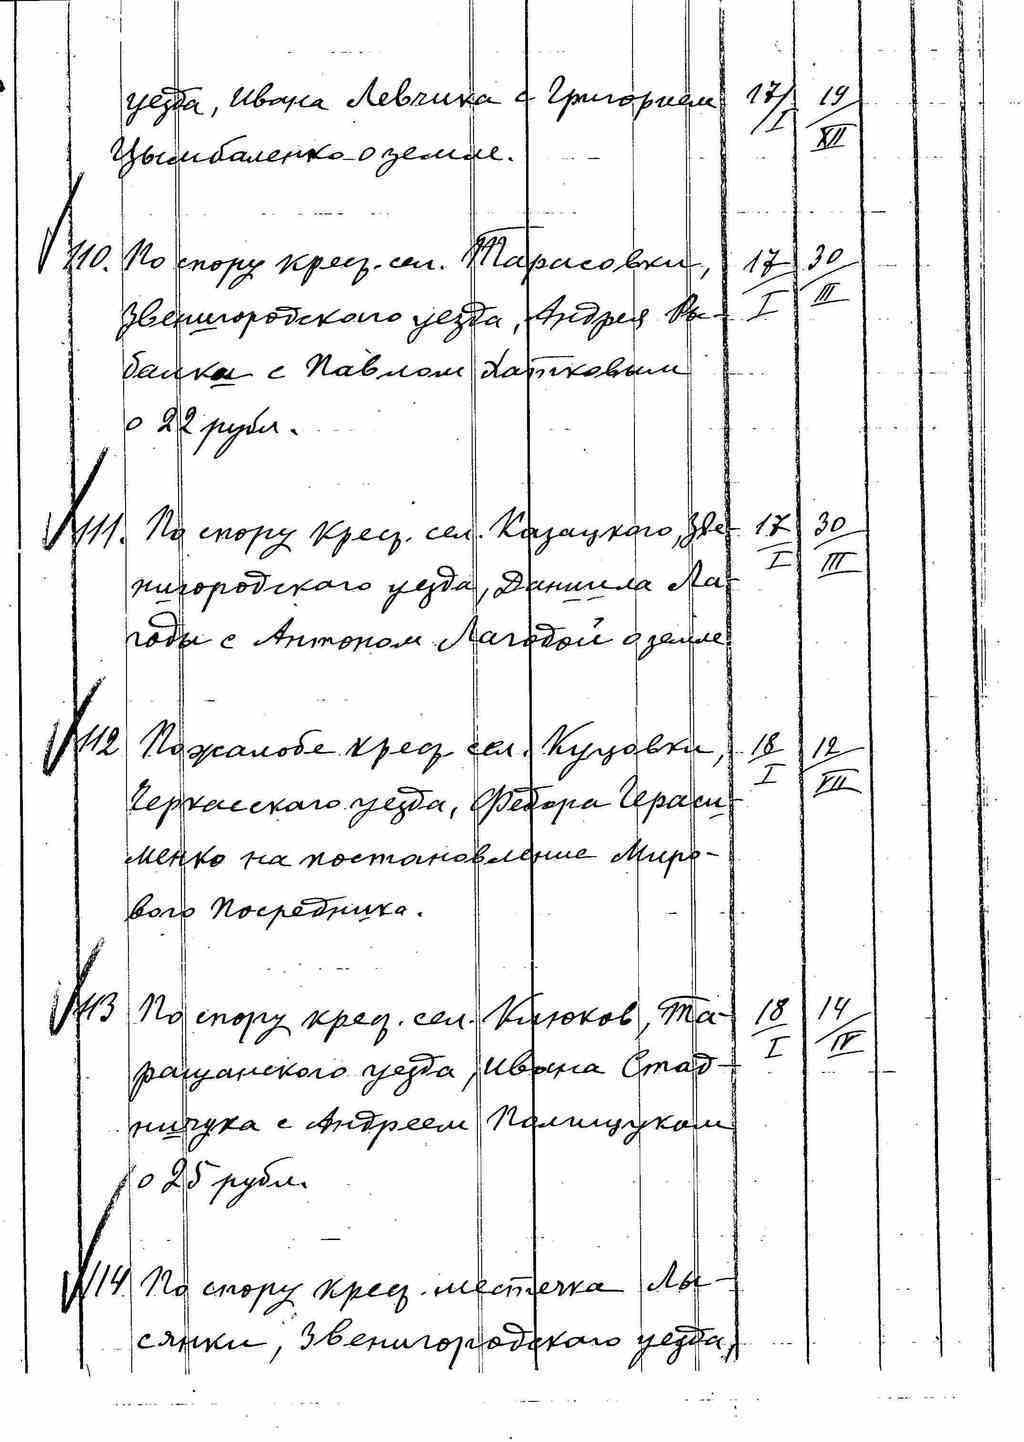 уезда, Ивана Левчика с Григорием 17/I 19/XII
Цымбаленко о земле.
110. По спору крест. сел. Тарасовки, 17/I 30/III
Звенигородского уезда, Андрея Ры-
балка с Павлом Хатковым
о 22 рубл.
111. По спору крест. сел. Казацкого, Зве- 17/I 30/III
нигородского уезда, Даниила Ла-
годы с Антоном Лагодой о земле
112 По жалобе крест. сел. Куцовки, 18/I 12/VII
Черкасского уезда, Федора Гераси-
менко на постановление Миро-
вого Посредника.
113 По спору крест. сел. Клюков, Та- 18/I 14/IV
ращанского уезда, Ивана Стад-
ничука с Андреем Полищуком
о 25 рубл.
114 По спору крест. местечка Лы-
сянки, Звенигородского уезда,